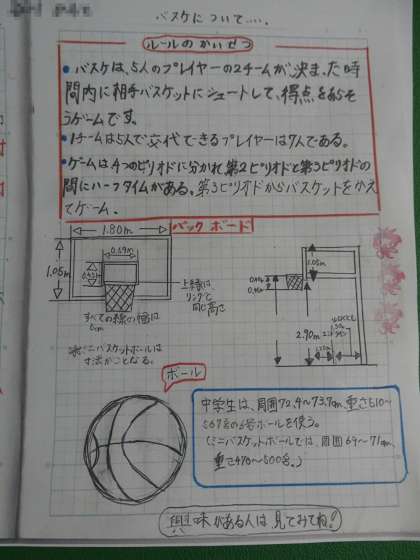 バスケについて....
ルールのかいせつ
・バスケは、5人のプレイヤーの2チームが、決まった時
間内に相手バスケットにシュートして、得点をあらそ
うゲームです。
・1チームは5人で交代できるプレイヤーは7人である。
・ゲームは4つのピリオドに分かれ第2ピリオドと第3ピリオドの
間にハーフタイムがある。第3ピリオドからバスケットをかえ
てゲーム.
バックボード
1.80m
0.59m
1.05m
上縁は、
リングと
同じ高さ
すべての線の幅は
※ミニバスケットボールは
寸法がことなる。
1.05m
2.90m
ボール
中学生は、周囲72.4〜73.7cm、重さ510〜
567gの6号ボールを使う。
(ミニバスケットボールでは、周囲69〜71cm、
重さ470〜500g。)
興味がある人は見てみてね!